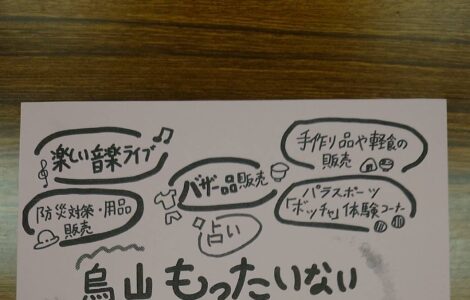 楽しい音楽ライブ
手作り品や軽食の
販売
バザー品販売
防災対策・用品
販売
パラスポーツ
「ボッチャ」体験コーナー
占い
烏山もったいない